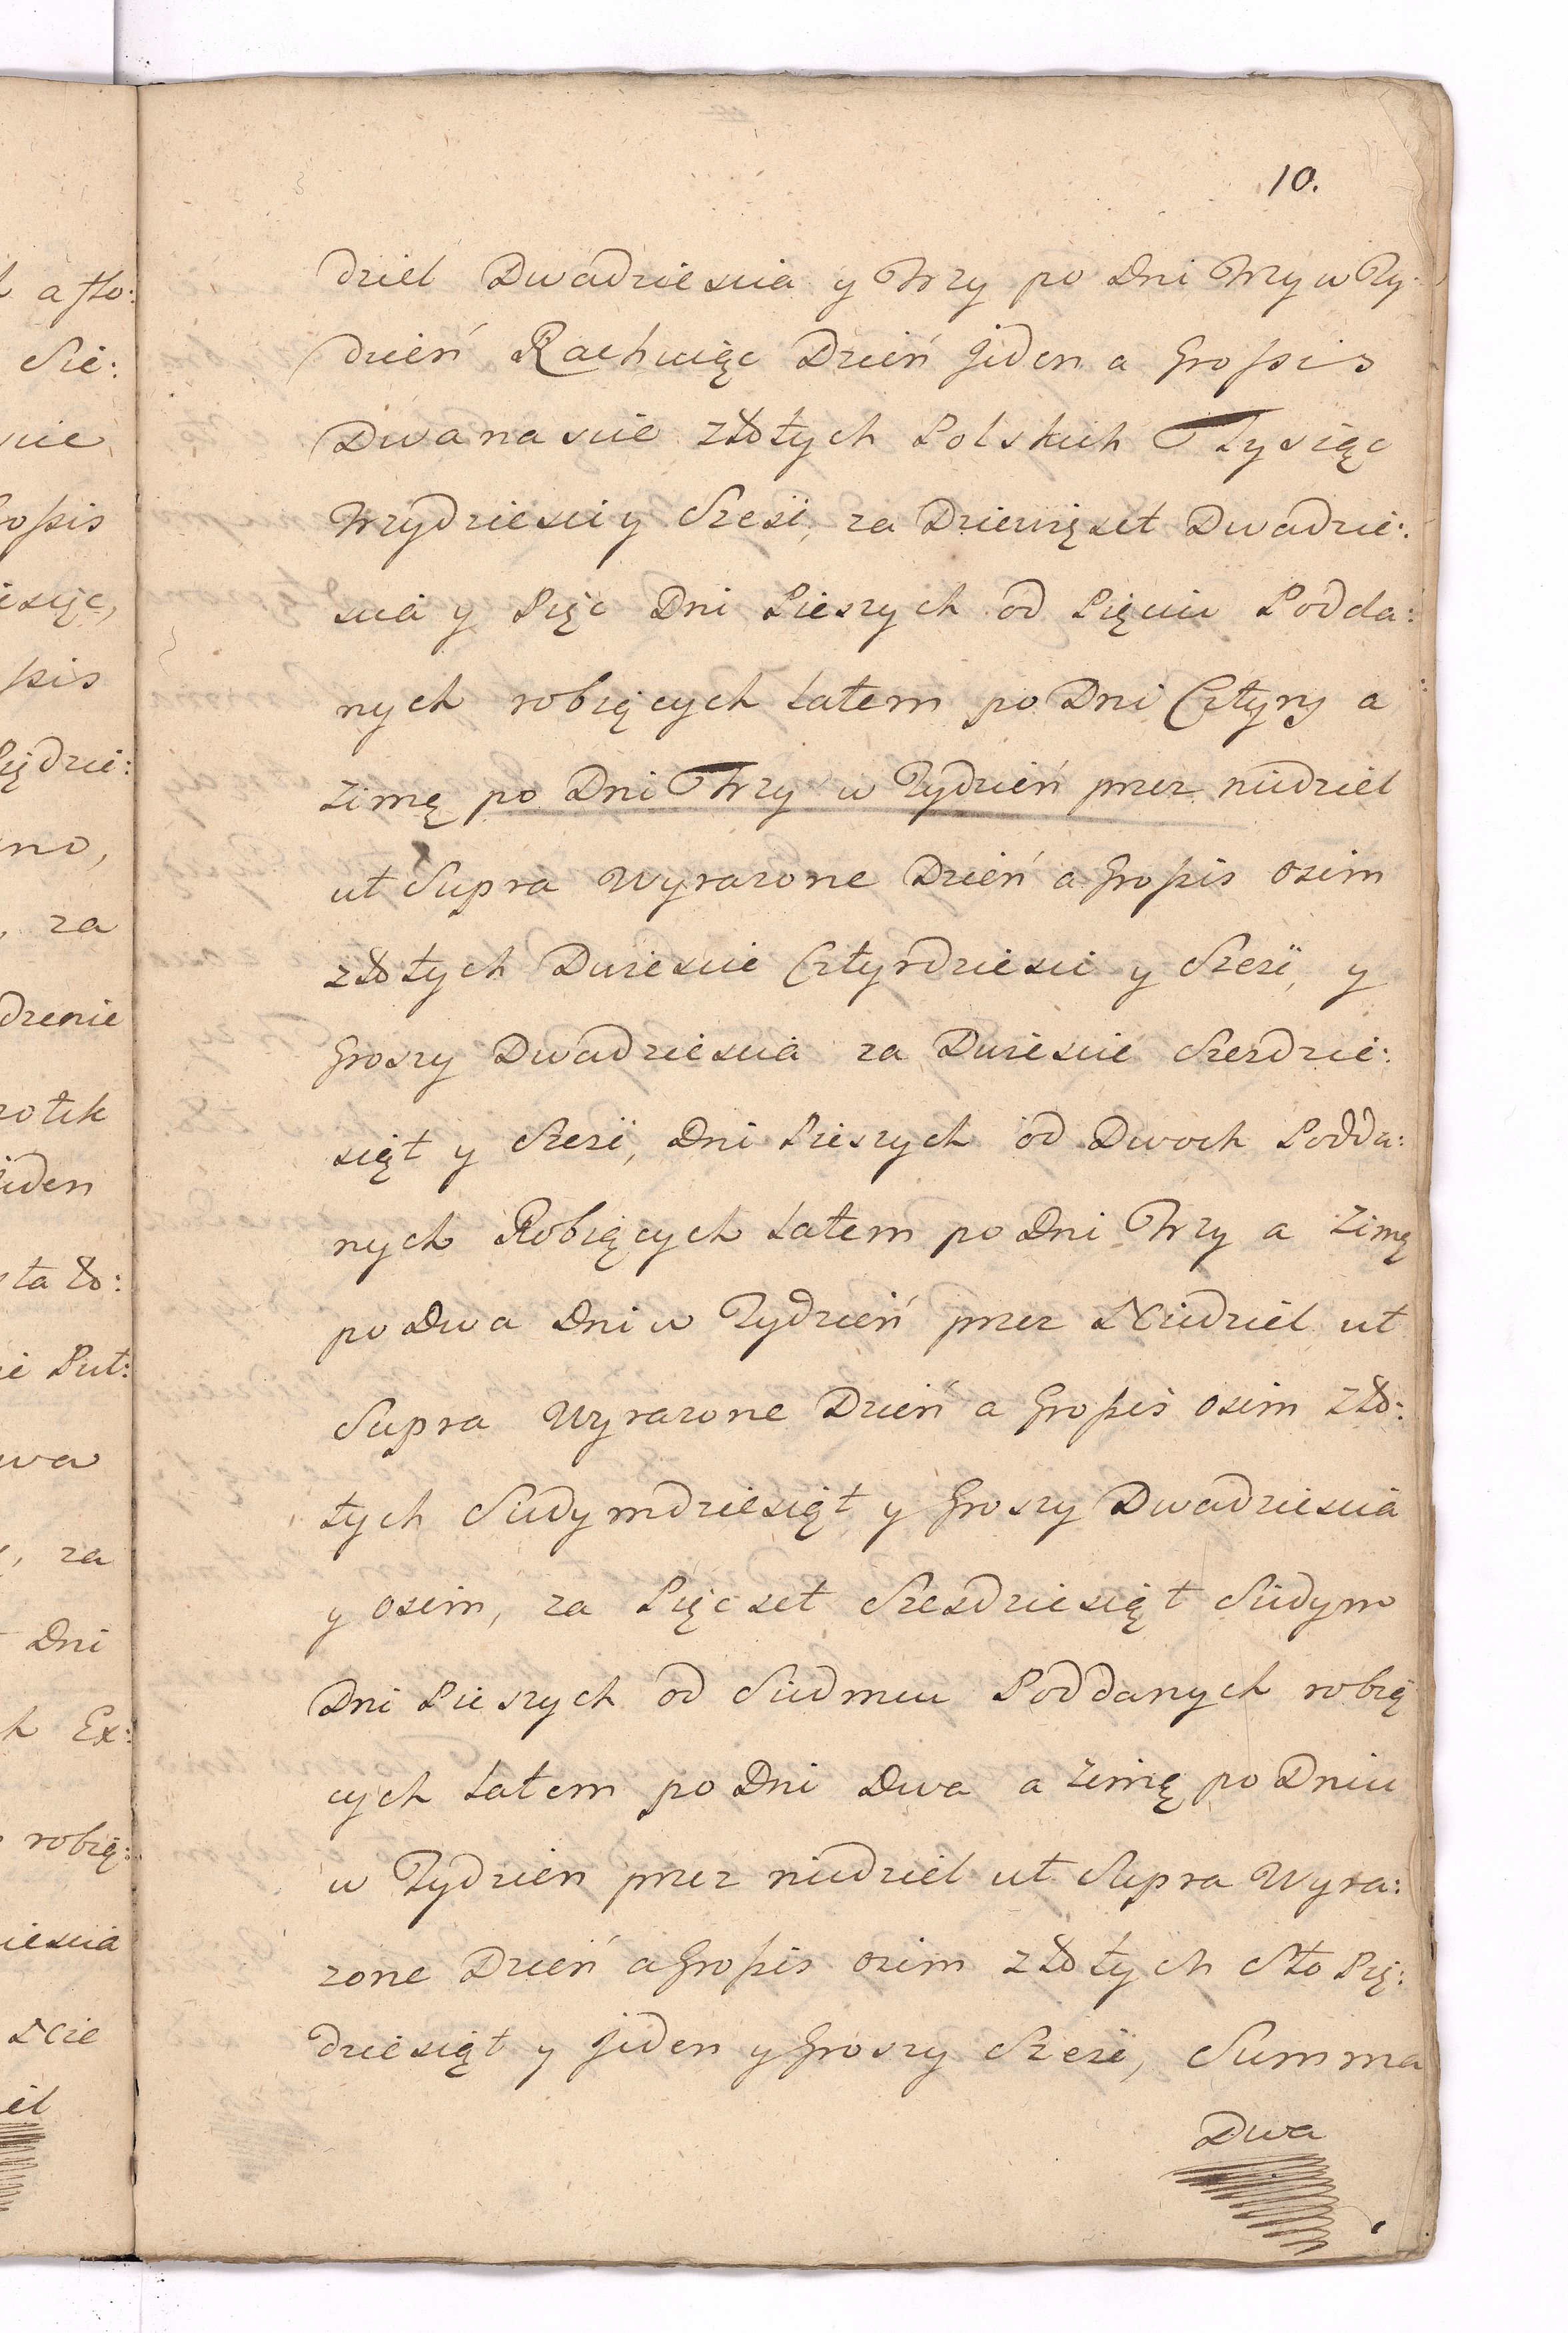 10.
dziel Dwadziescia y Trzy po Dni Trzy w Ty:
dzień Rachuięc Dzień Jeden a Grossis
Dwanascie złotych Polskich Tysiąc
Trzydziesci y Szesć, za Dziewięset Dwadzie:
scia y Pięc Dni Pieszych od Pięciu Podda:
nych robiących Latem po Dni Cztyry a
Zimą po Dni Trzy w Tydzień przez niedziel
ut Supra Wyrazone Dzień a Grossis osim
złotych Dwiescie Cztyrdziesci y Szesć, y
Groszy Dwadziescia za Dwiescie Szesdzie:
siąt y Szesć, Dni Pieszych od Dwoch Podda:
nych Robiących Latem po Dni Trzy a Zimą
po Dwa Dni w Tydzień przez Niedziel ut
Supra Wyrazone Dzień a Grossis osim Zło:
tych Siedymdziesiąt y Groszy Dwadziescia
y osim, za Pięcset Szesdziesiąt Siedym
Dni Pieszych od Siedmiu Poddanych robią
cych Latem po Dni Dwa a Zimą po Dniu
w Tydzien przez niedziel ut Supra Wyra:
zone Dzień a Grossis osim złotych Sto Pię:
dziesiąt y Jeden y Groszy Szesć, Summa
Dwa